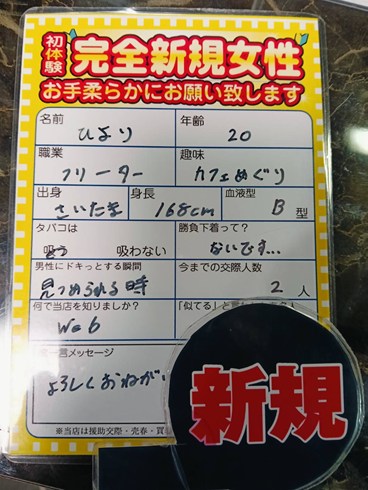 初体験 完全新規女性
お手柔らかにお願い致します
名前 年齢
ひより 20
職業 趣味
フリーター カフェめぐり
出身 身長 血液型
さいたま 168cm B型
タバコは 勝負下着って?
吸う 吸わない ないです…
男性にドキっとする瞬間 今までの交際人数
見つめられる時 2人
何で当店を知りましたか? 「似てる」と
Web
一言メッセージ
よろしくおねがい
新規
※当店は援助交際・売春・買